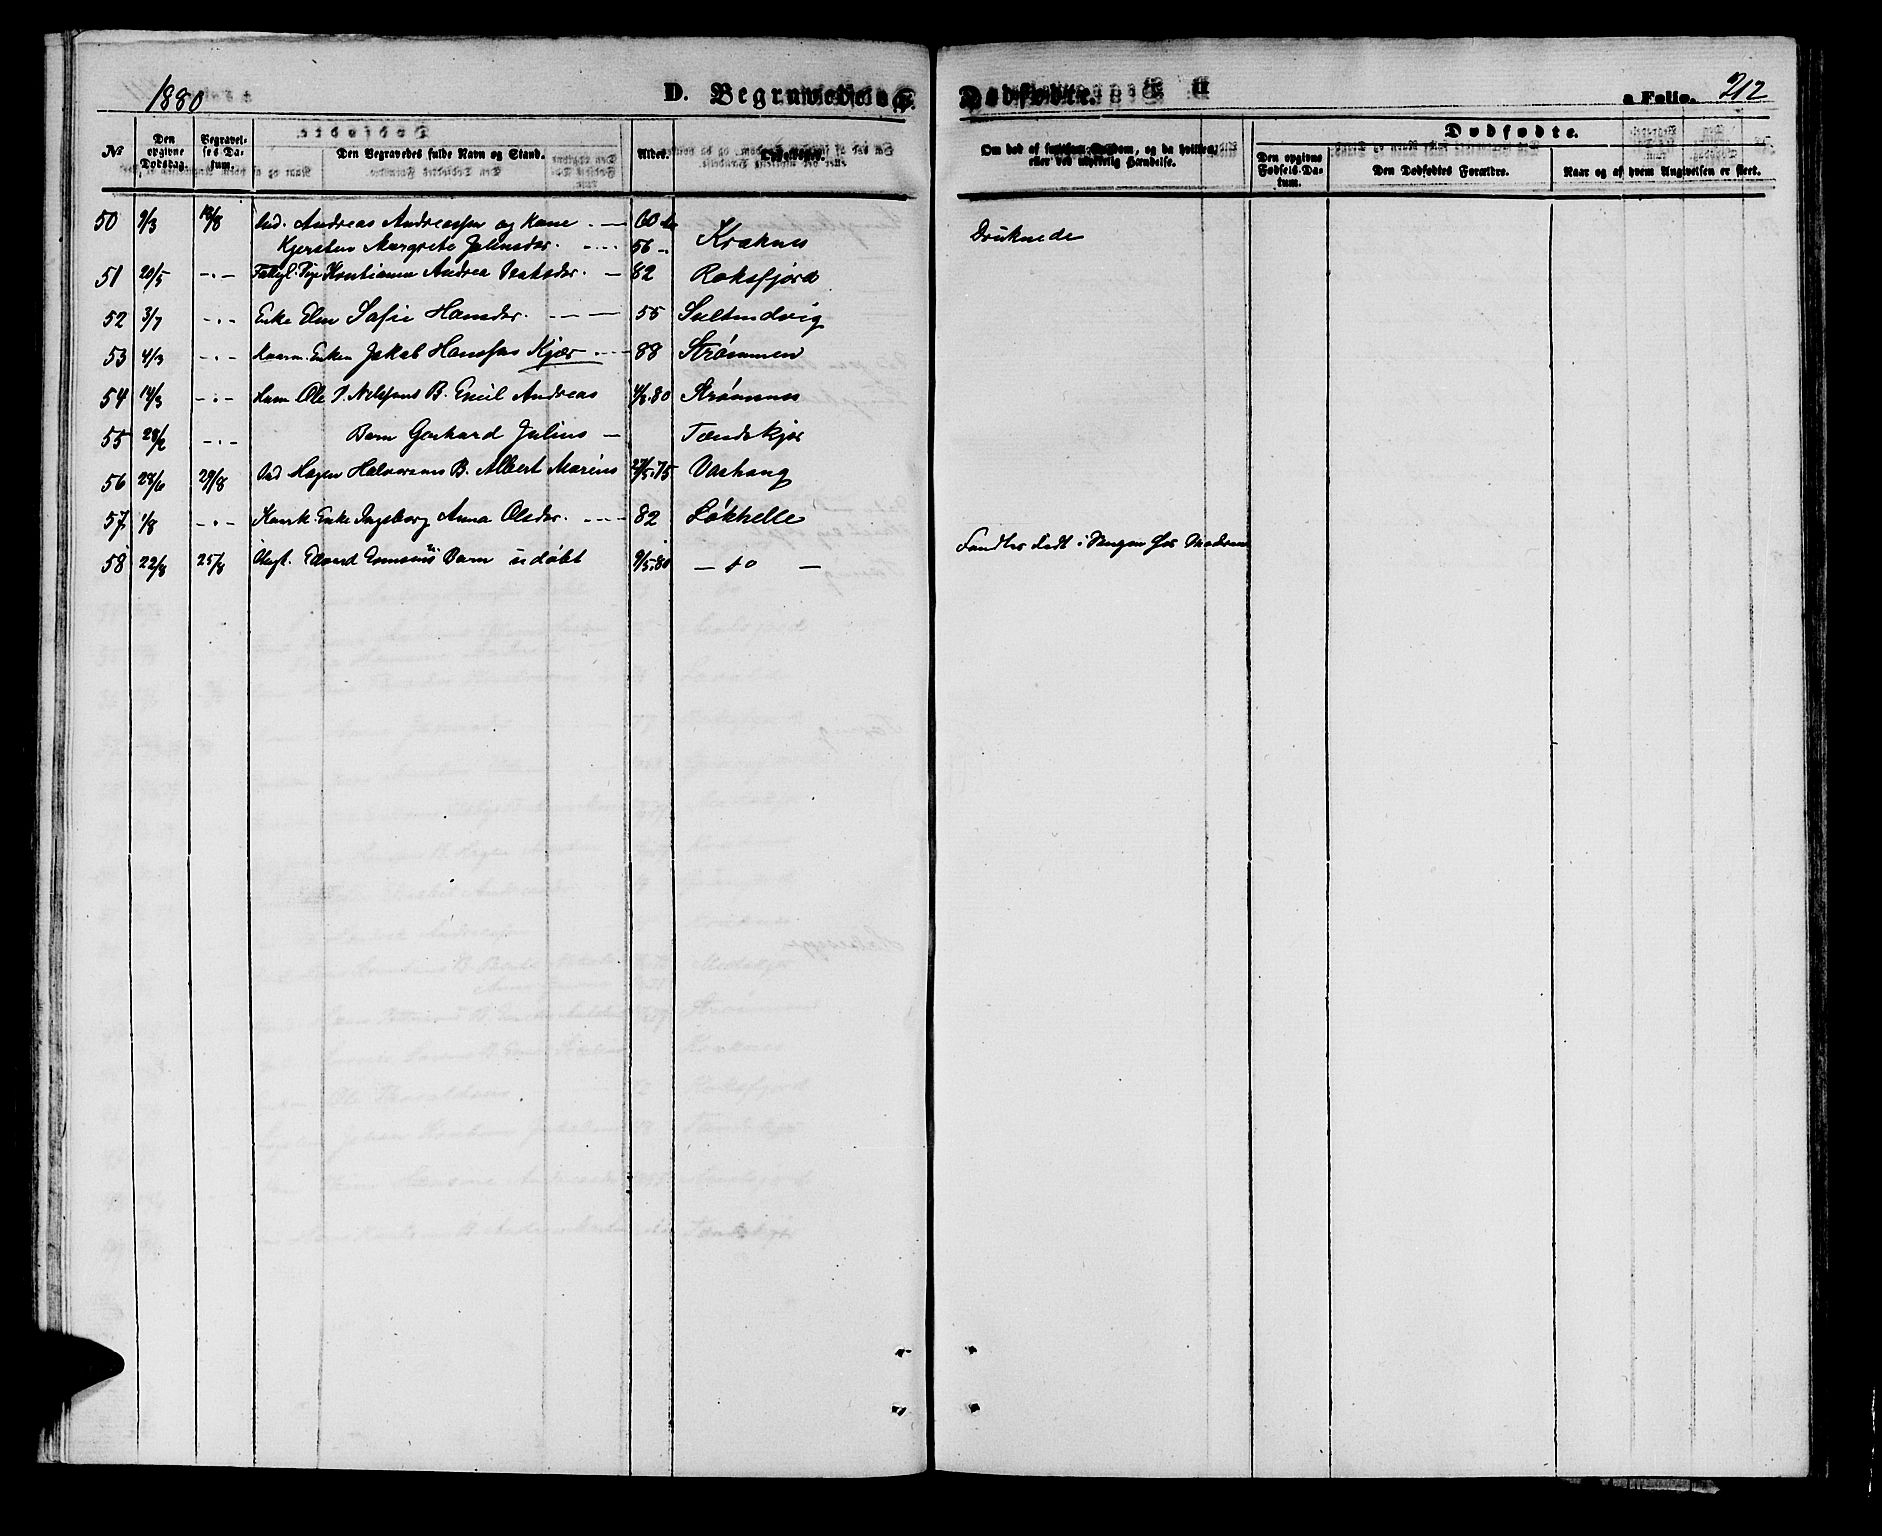 1880
D. Begravelses og
Dødfødte.
a Folio. 212
№
Den opgivne Dødsdag.
Begravelses Datum.
Den Begravedes fulde Navn og Stand.
Alder.
Om død af smitsom Sygdom, og da hvilken, eller ved ulykkelig Hændelse.
Dødfødte.
Den opgivne Fødsels-Datum.
Den Dødfødtes Forældre.
Naar og af hvem Angivelsen er skeet.
50 9/3 /8 Ind. Andreas Andreassen og Kone 60 Kraknes Druknede
Kjersten Margrete Johnsdr. 56
51 20/5 -"- Pige Kristianna Andrea 82 Roksfjord
52 3/7 -"- Enke Elen Safie Hansdr. 55 Sultindvig
53 4/3 -"- Jakob Hansens Kjær 88 Strømmen
54 14/3 -"- Ole Nilssens B. Emil Andreas 80 Strømmen
55 28/2 -"- Barn Gerhard Julius Tændskjær
56 28/6 29/8 Ind Hagen Halvorsens B. Albert Marius 27/5.75 Vashaug
57 1/8 -"- Enke Ingeborg Anna Olsdr. 82 Løkhelle
58 22/8 25/8 Edvard Barn udøbt 9/5.80 - do - Fandtes dødt i Sengen hos Moderen